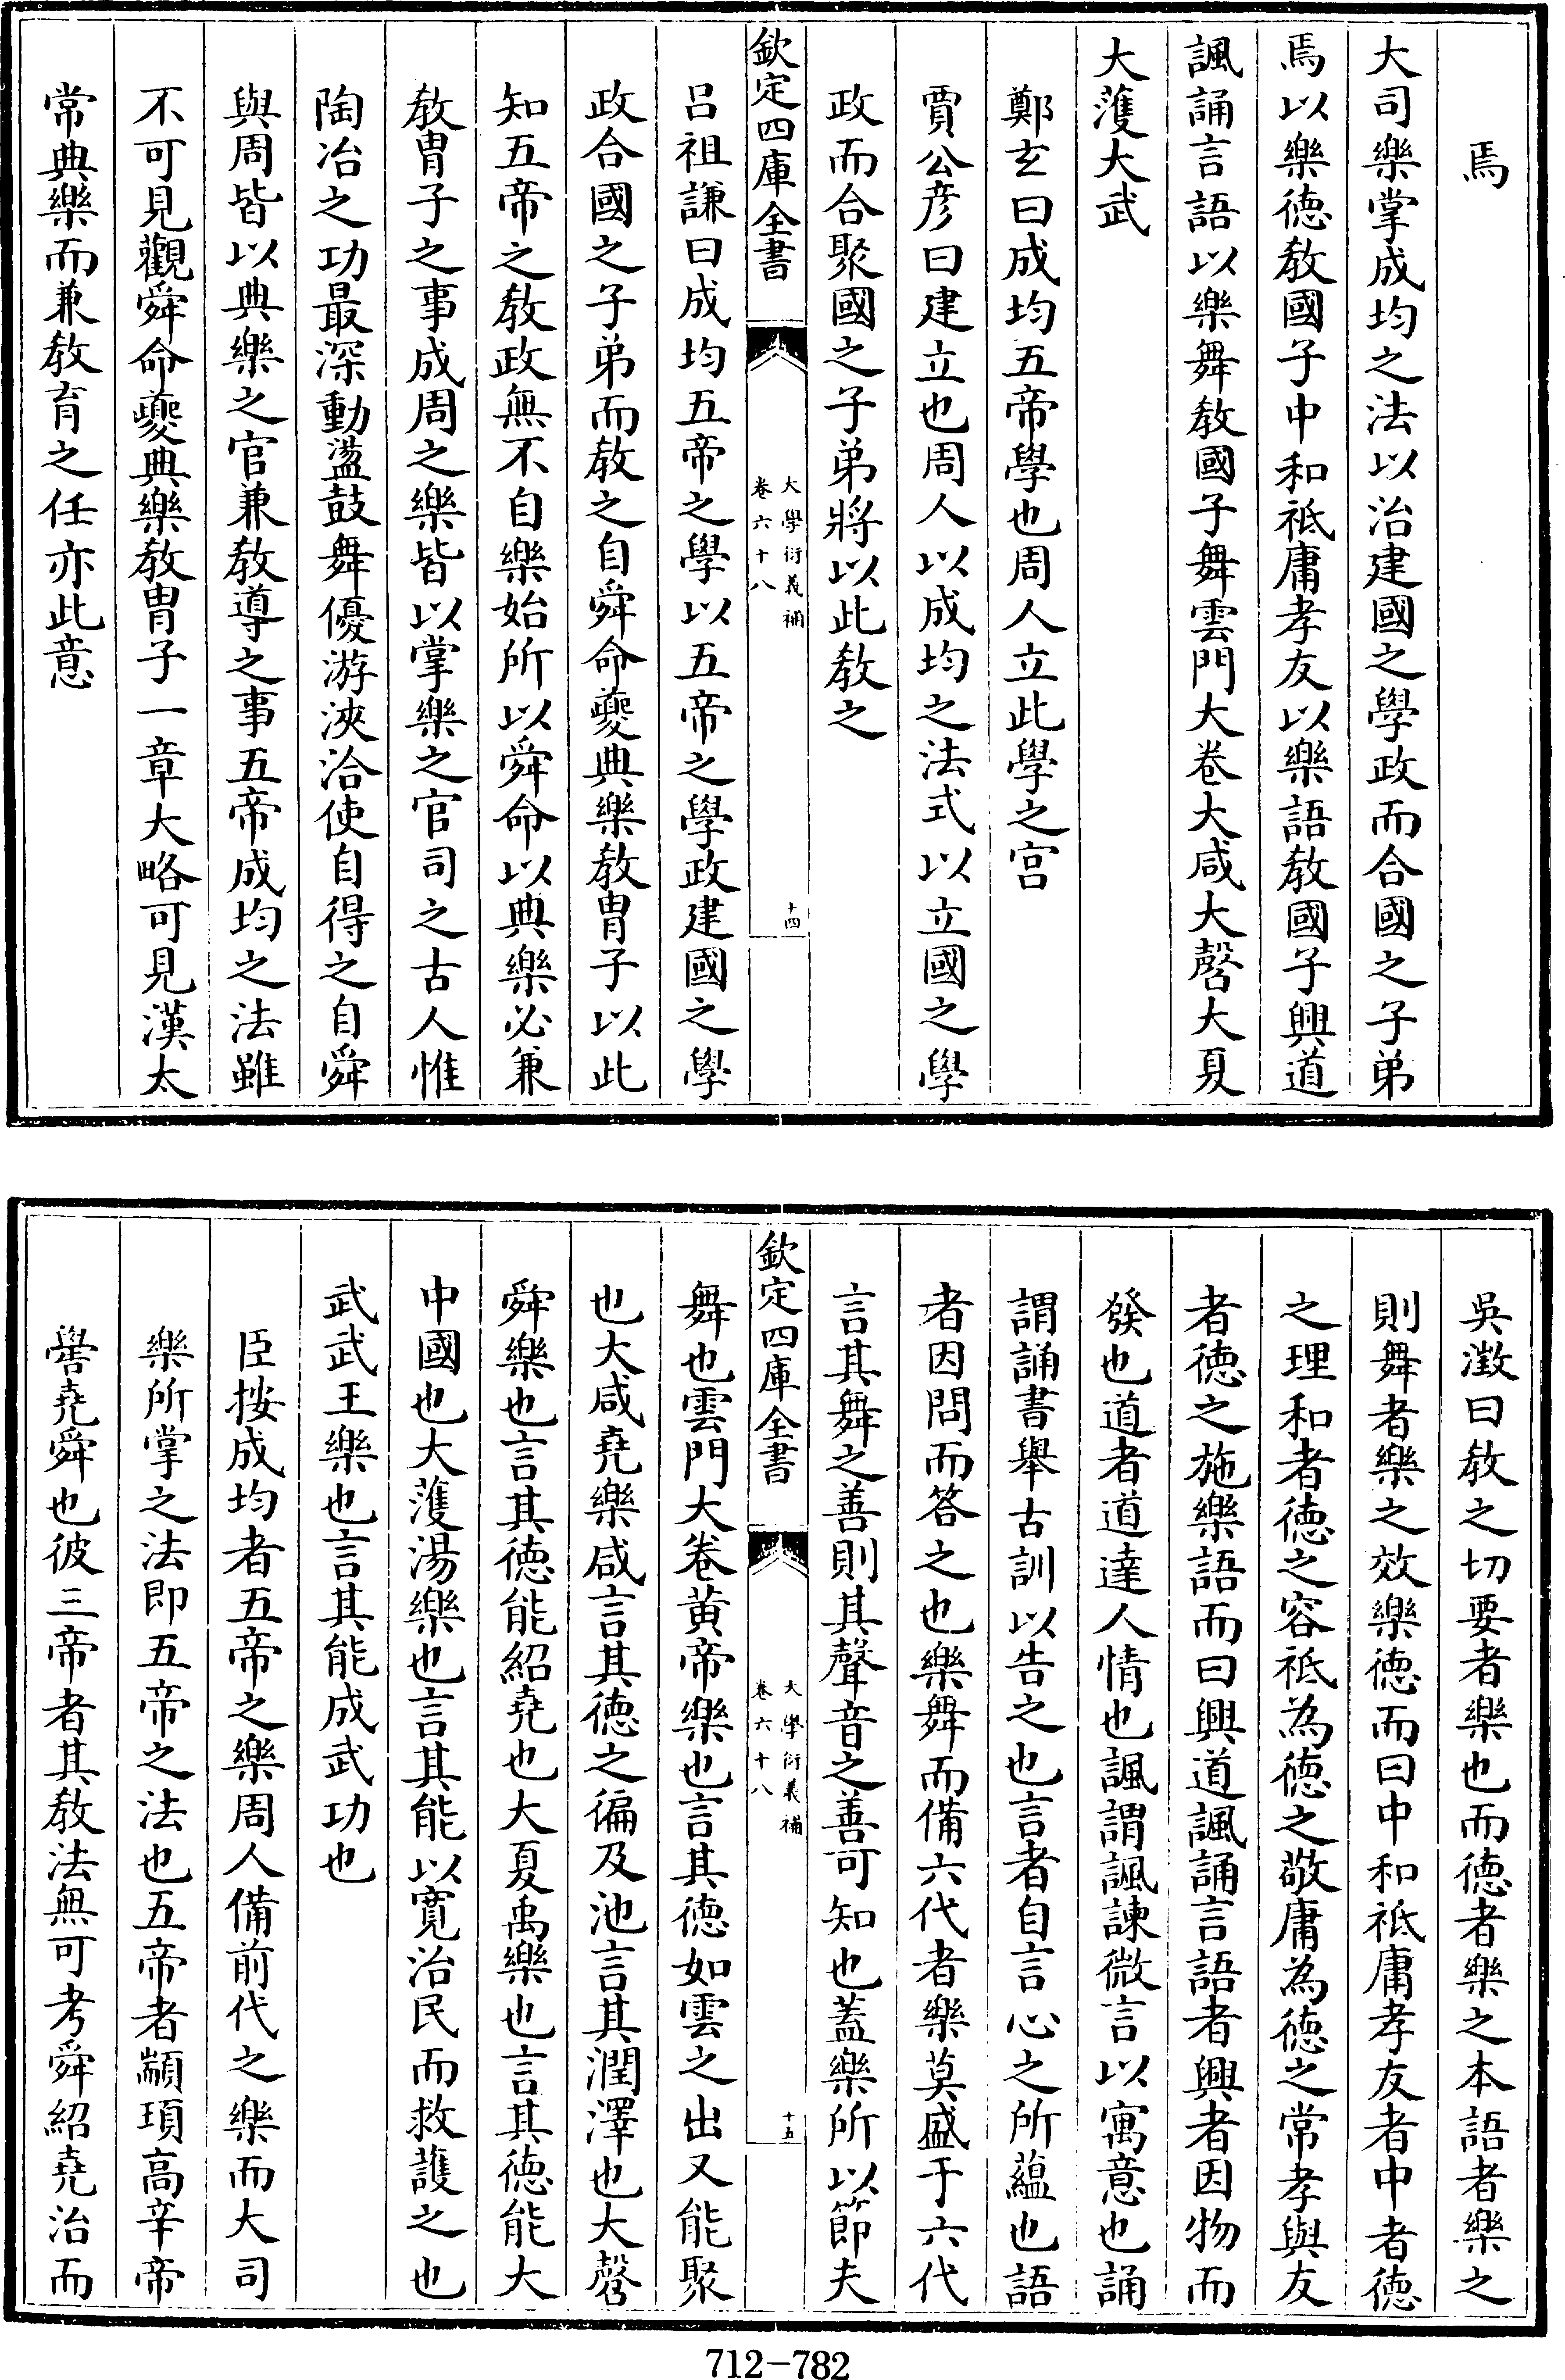 焉
大司樂掌成均之法以治建國之學政而合國之子弟
焉以樂徳敎國子中和祗庸孝友以樂語敎國子興道
諷誦言語以樂舞敎國子舞雲門大卷大咸大㲈大夏
大濩大武
鄭玄曰成均五帝學也周人立此學之宫
賈公彦曰建立也周人以成均之法式以立國之學
政而合聚國之子弟將以此敎之
欽定四庫全書
大學衍義補
卷六十八
十四
吕祖謙曰成均五帝之學以五帝之學政建國之學
政合國之子弟而敎之自舜命夔典樂敎胄子以此
知五帝之敎政無不自樂始所以舜命以典樂必兼
敎胄子之事成周之樂皆以掌樂之官司之古人惟
陶冶之功最深動盪鼓舞優游浹洽使自得之自舜
與周皆以典樂之官兼敎導之事五帝成均之法雖
不可見觀舜命夔典樂敎胄子一章大略可見漢太
常典樂而兼敎育之任亦此意
吳澂曰敎之切要者樂也而徳者樂之本語者樂之
則舞者樂之效樂徳而曰中和祗庸孝友者中者徳
之理和者徳之容祗為徳之敬庸為徳之常孝與友
者徳之施樂語而曰興道諷誦言語者興者因物而
發也道者道達人情也諷謂諷諫微言以寓意也誦
謂誦書舉古訓以告之也言者自言心之所蘊也語
者因問而答之也樂舞而備六代者樂莫盛于六代
言其舞之善則其聲音之善可知也蓋樂所以節夫
欽定四庫全書
大學衍義補
卷六十八
十五
舞也雲門大卷黄帝樂也言其徳如雲之出又能聚
也大咸堯樂咸言其徳之徧及池言其潤澤也大㲈
舜樂也言其徳能紹堯也大夏禹樂也言其徳能大
中國也大濩湯樂也言其能以寛治民而救護之也
武武王樂也言其能成武功也
臣按成均者五帝之樂周人備前代之樂而大司
樂所掌之法即五帝之法也五帝者顓頊高辛帝
嚳堯舜也彼三帝者其敎法無可考舜紹堯治而
712-782